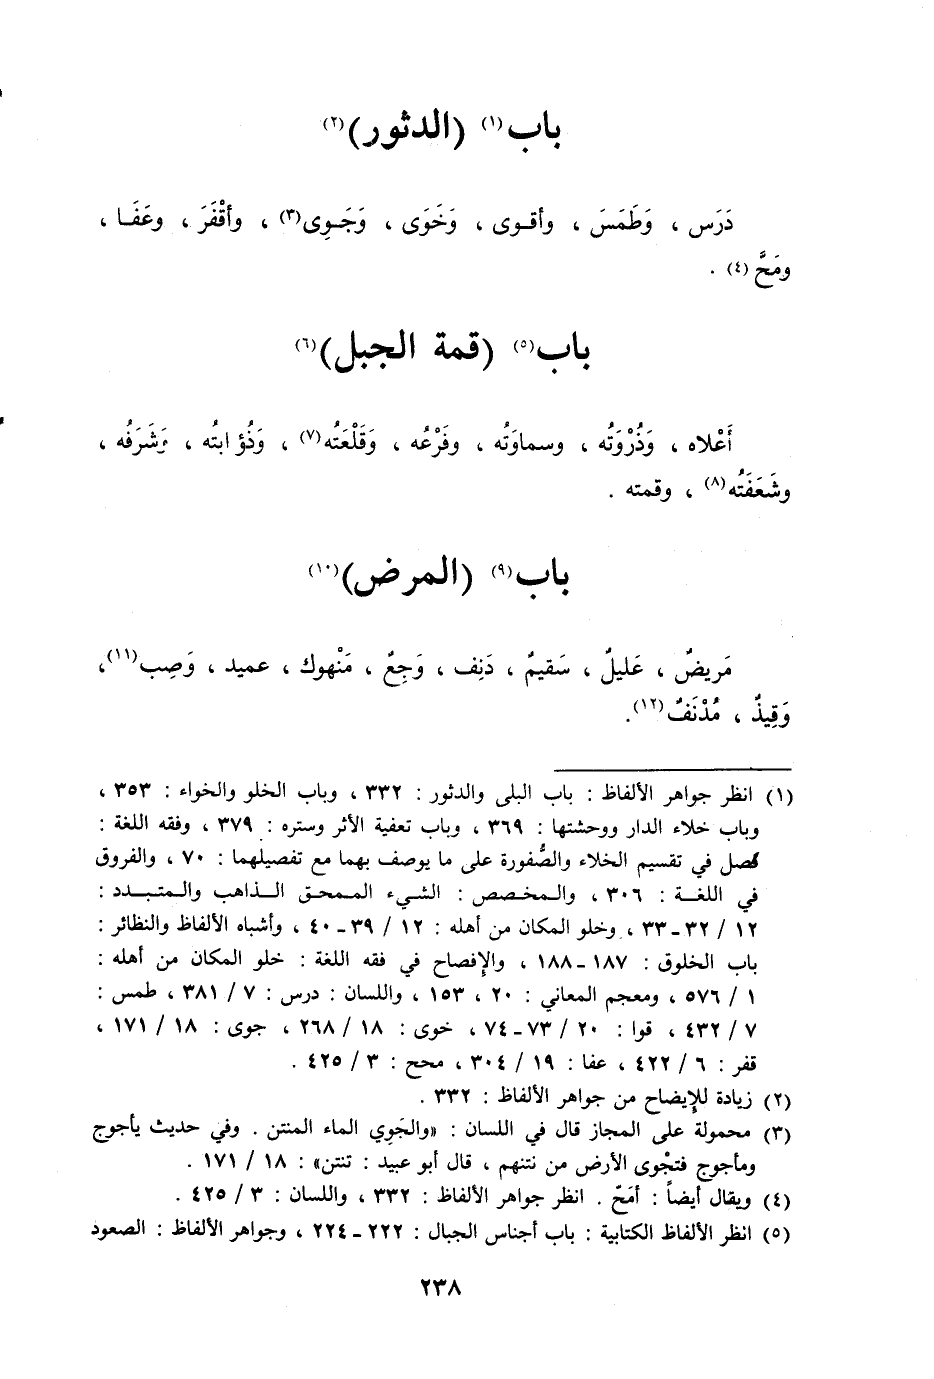 باب(١) (الدثور)(٢)
دَرَس ، وَطَمَسَ ، وأقوى ، وَخَوَى ، وَجَوِى(٣) ، وأقْفَرَ ، وعَفَا ،
ومَحَّ(٤) .
باب(٥) (قمة الجبل)(٦)
أَعْلاه ، وَذُرْوَتُه ، وسماوَتُه ، وفَرْعُه ، وَقَلْعَتُه(٧) ، وَذُؤابتُه ، وَشَرَفُه ،
وشَعَفَتُه(٨) ، وقمته .
باب(٩) (المرض)(١٠)
مَريضٌ ، عَليلٌ ، سَقيمٌ ، دَنِف ، وَجِعٌ ، مَنْهوك ، عميد ، وَصِب(١١)،
وَقِيذٌ ، مُدْنَفٌ(١٢).
(١) انظر جواهر الألفاظ : باب البلى والدثور : ٣٣٢ ، وباب الخلو والخواء : ٣٥٣ ،
وباب خلاء الدار ووحشتها : ٣٦٩ ، وباب تعفية الأثر وستره : ٣٧٩ ، وفقه اللغة :
فصل في تقسيم الخلاء والصُّفورة على ما يوصف بهما مع تفصيلهما : ٧٠ ، والفروق
في اللغة : ٣٠٦ ، والمخصص : الشيء الممحق الذاهب والمتبدد :
١٢ / ٣٢ - ٣٣ ، وخلو المكان من أهله : ١٢ / ٣٩ - ٤٠ ، وأشباه الألفاظ والنظائر :
باب الخلوق : ١٨٧ - ١٨٨ ، والإفصاح في فقه اللغة : خلو المكان من أهله :
١ / ٥٧٦ ، ومعجم المعاني : ٢٠ ، ١٥٣ ، واللسان : درس : ٧ / ٣٨١ ، طمس :
٧ / ٤٣٢ ، قوا : ٢٠ / ٧٣ - ٧٤ ، خوى : ١٨ / ٢٦٨ ، جوى : ١٨ / ١٧١ ،
قفر : ٦ / ٤٢٢ ، عفا : ١٩ / ٣٠٤ ، محح : ٣ / ٤٢٥ .
(٢) زيادة للإيضاح من جواهر الألفاظ : ٣٣٢ .
(٣) محمولة على المجاز قال في اللسان : «والجَوِي الماء المنتن . وفي حديث يأجوج
ومأجوج فتجْوى الأرض من نتنهم ، قال أبو عبيد : تنتن» : ١٨ / ١٧١ .
(٤) ويقال أيضاً : أمَحّ . انظر جواهر الألفاظ : ٣٣٢ ، واللسان : ٣ / ٤٢٥ .
(٥) انظر الألفاظ الكتابية : باب أجناس الجبال : ٢٢٢ - ٢٢٤ ، وجواهر الألفاظ : الصعود
٢٣٨